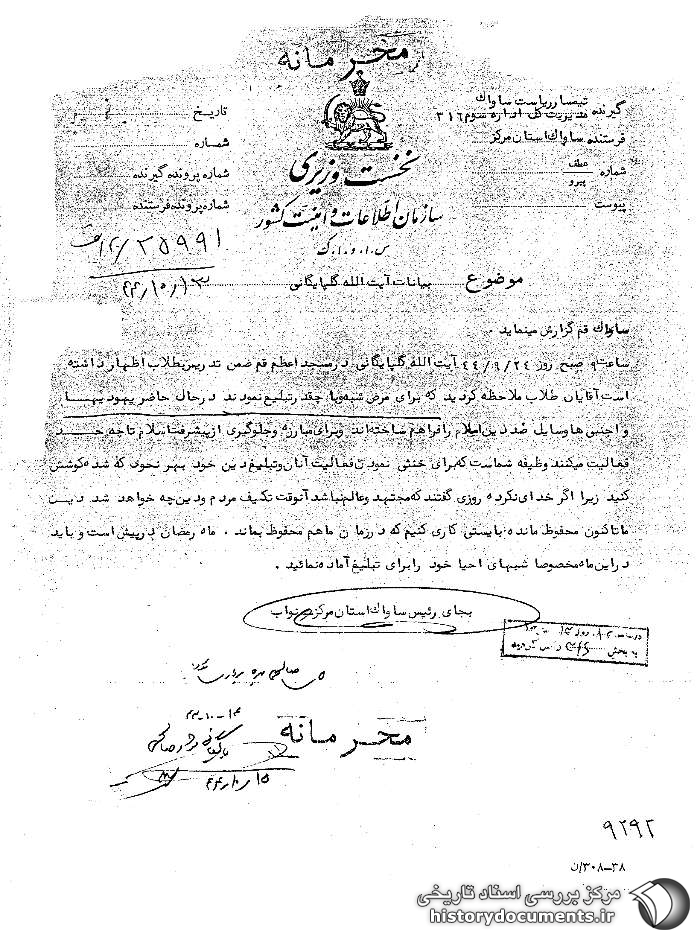 محرمانه
گیرنده تیمسار ریاست ساواک
مدیریت کل اداره سوم ۳۱۶
فرستنده ساواک استان مرکز
شماره عطف
پیرو
پیوست
تاریخ
شماره
شماره پرونده گیرنده
شماره پرونده فرستنده
نخست وزیری
سازمان اطلاعات و امنیت کشور
س.ا.و.ا.ک
۲۵۹۹۱/۱۲ ف
۴۴/۱۰/۱۳
موضوع بیانات آیت الله گلپایگانی
ساواک قم گزارش مینماید .
ساعت ۹ صبح روز ۴۴/۹/۲۴ آیت الله گلپایگانی در مسجد اعظم قم ضمن تدریس بطلاب اظهار داشته
است آقایان طلاب ملاحظه کردید که برای مرض شبه وبا چقدر تبلیغ نمودند در حال حاضر یهودیها
و اجنبی ها وسایل ضد دین اسلام را فراهم ساخته‌اند و برای مبارزه و جلوگیری از پیشرفت اسلام تا چه حد
فعالیت میکنند وظیفه شماست که برای خنثی نمودن فعالیت آنان و تبلیغ دین خود بهر نحوی که شده کوشش
کنید زیرا اگر خدای نکرده روزی گفتند که مجتهد و عالم نباشد آنوقت تکلیف مردم و دین چه خواهد شد دین
ما تاکنون محفوظ مانده بایستی کاری کنیم که در زمان ما هم محفوظ بماند . ماه رمضان در پیش است و باید
در این ماه مخصوصا شبهای احیا خود را برای تبلیغ آماده نمائید .
بجای رئیس ساواک استان مرکز نواب
به بخش ۳۱۶
۴۴-۱۰-۱۴
محرمانه
۴۴/۱۰/۱۵
۹۲۹۲
۳۰۸-۳۸/ن
مرکز بررسی اسناد تاریخی
historydocuments.ir